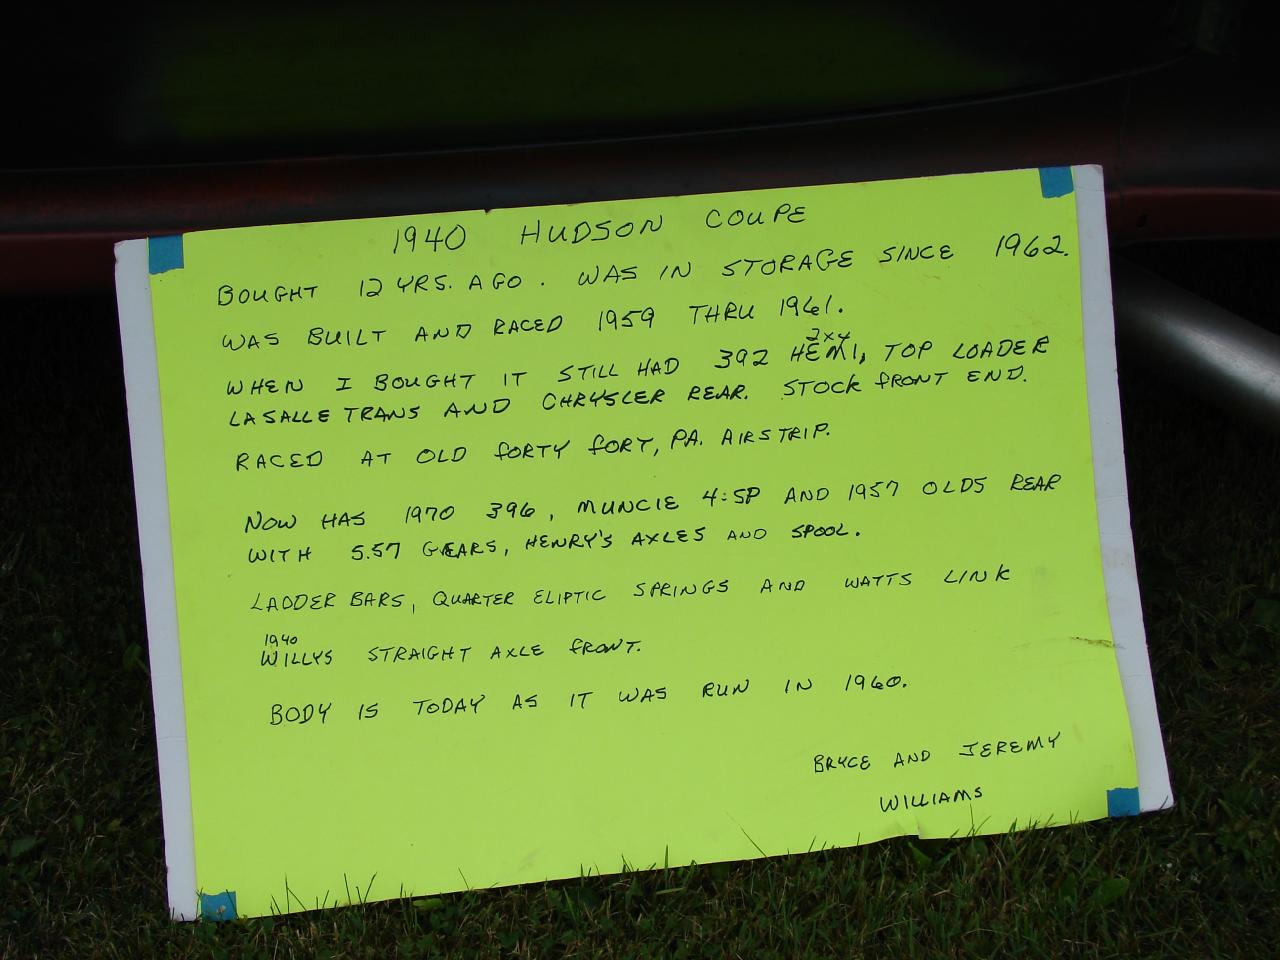 1940 HUDSON COUPE
BOUGHT 12 YRS. AGO. WAS IN STORAGE SINCE 1962.
WAS BUILT AND RACED 1959 THRU 1961.
2x4
WHEN I BOUGHT IT STILL HAD 392 HEMI, TOP LOADER
LASALLE TRANS AND CHRYSLER REAR. STOCK FRONT END.
RACED AT OLD FORTY FORT, PA. AIRSTRIP.
NOW HAS 1970 396, MUNCIE 4:SP AND 1957 OLDS REAR
WITH 5.57 GEARS, HENRY'S AXLES AND SPOOL.
LADDER BARS, QUARTER ELIPTIC SPRINGS AND WATTS LINK
1940
WILLYS STRAIGHT AXLE FRONT.
BODY IS TODAY AS IT WAS RUN IN 1960.
BRYCE AND JEREMY
WILLIAMS